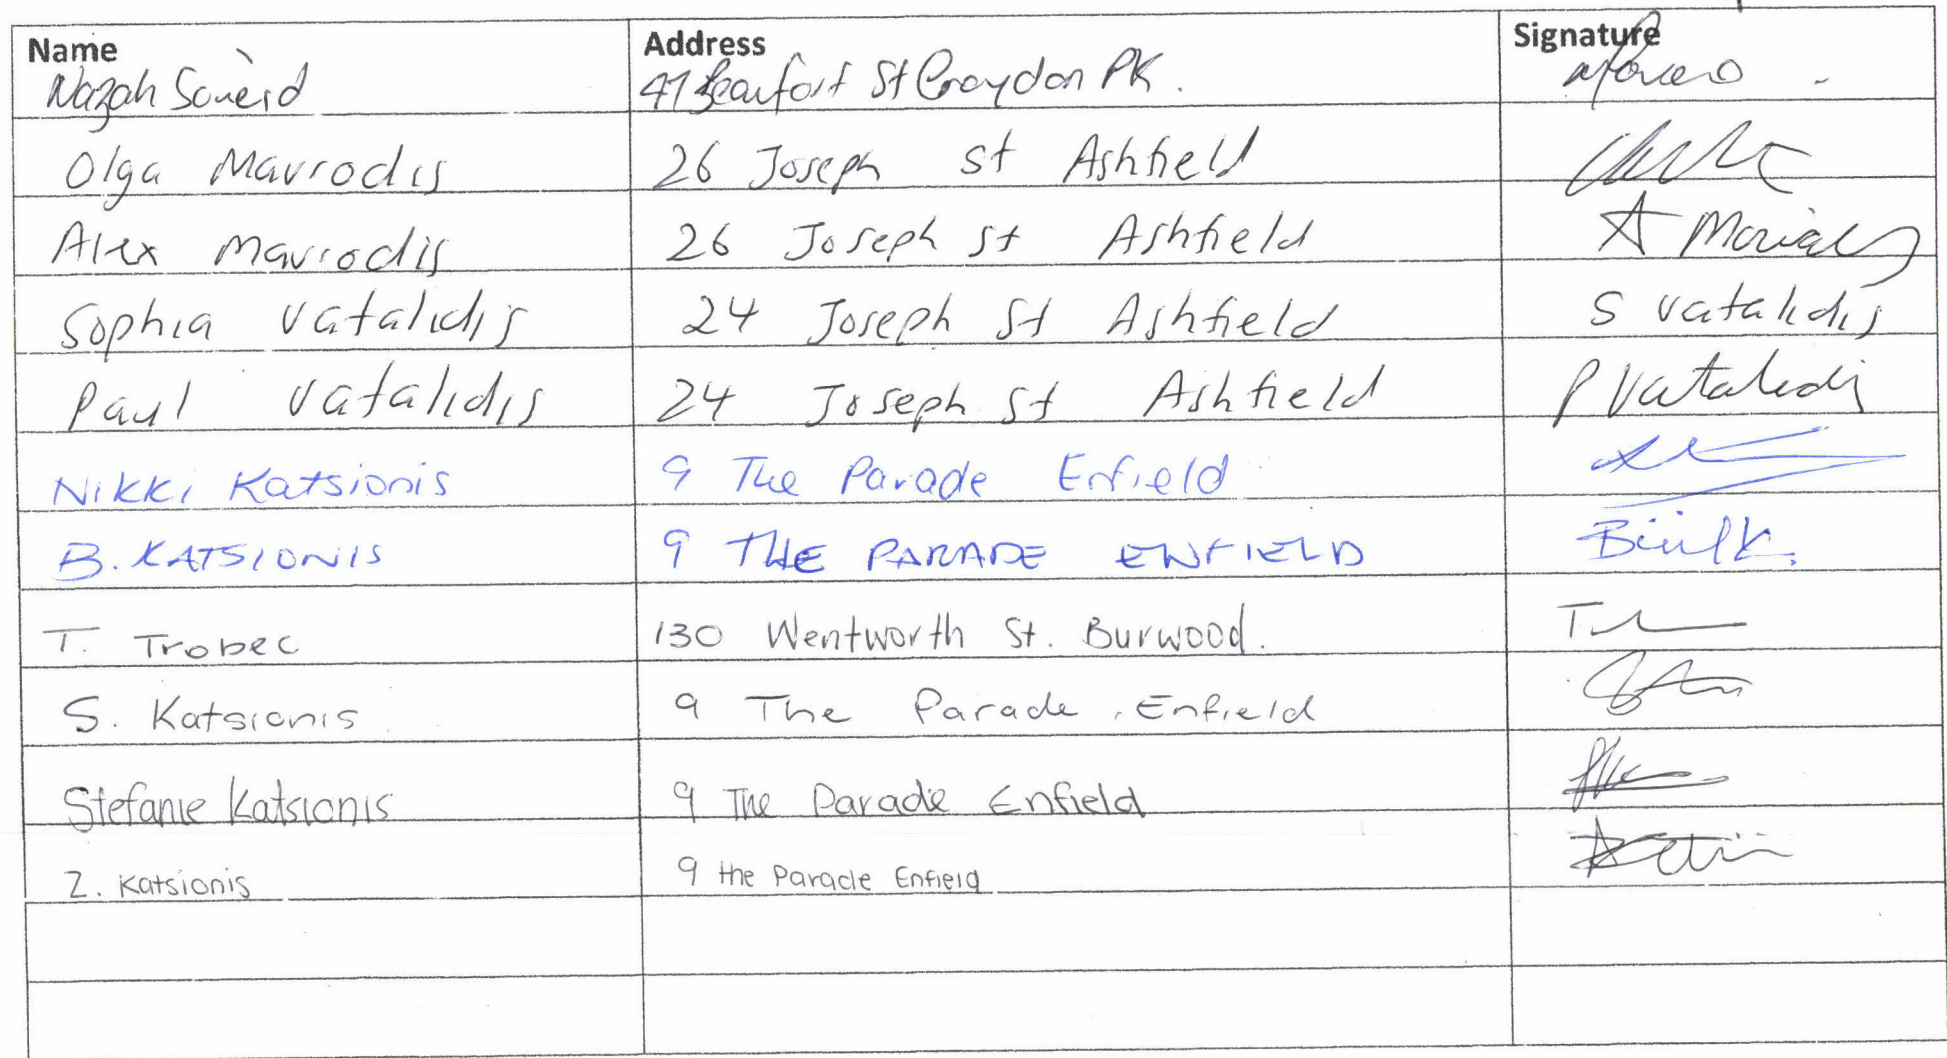 Name Address Signature
Nazah Soueid 47 Beaufort St Croydon PK.
Olga Mavrodis 26 Joseph st Ashfield
Alex Mavrodis 26 Joseph st Ashfield A
Sophia Vatalidis 24 Joseph St Ashfield S Vatalidis
Paul Vatalidis 24 Joseph St Ashfield P Vatalidis
Nikki Katsionis 9 The Parade Enfield
B. KATSIONIS 9 THE PARADE ENFIELD
T. Trobec 130 Wentworth St. Burwood.
S. Katsionis 9 The Parade, Enfield
Stefanie Katsionis 9 The Parade Enfield
Z. Katsionis 9 the Parade Enfield